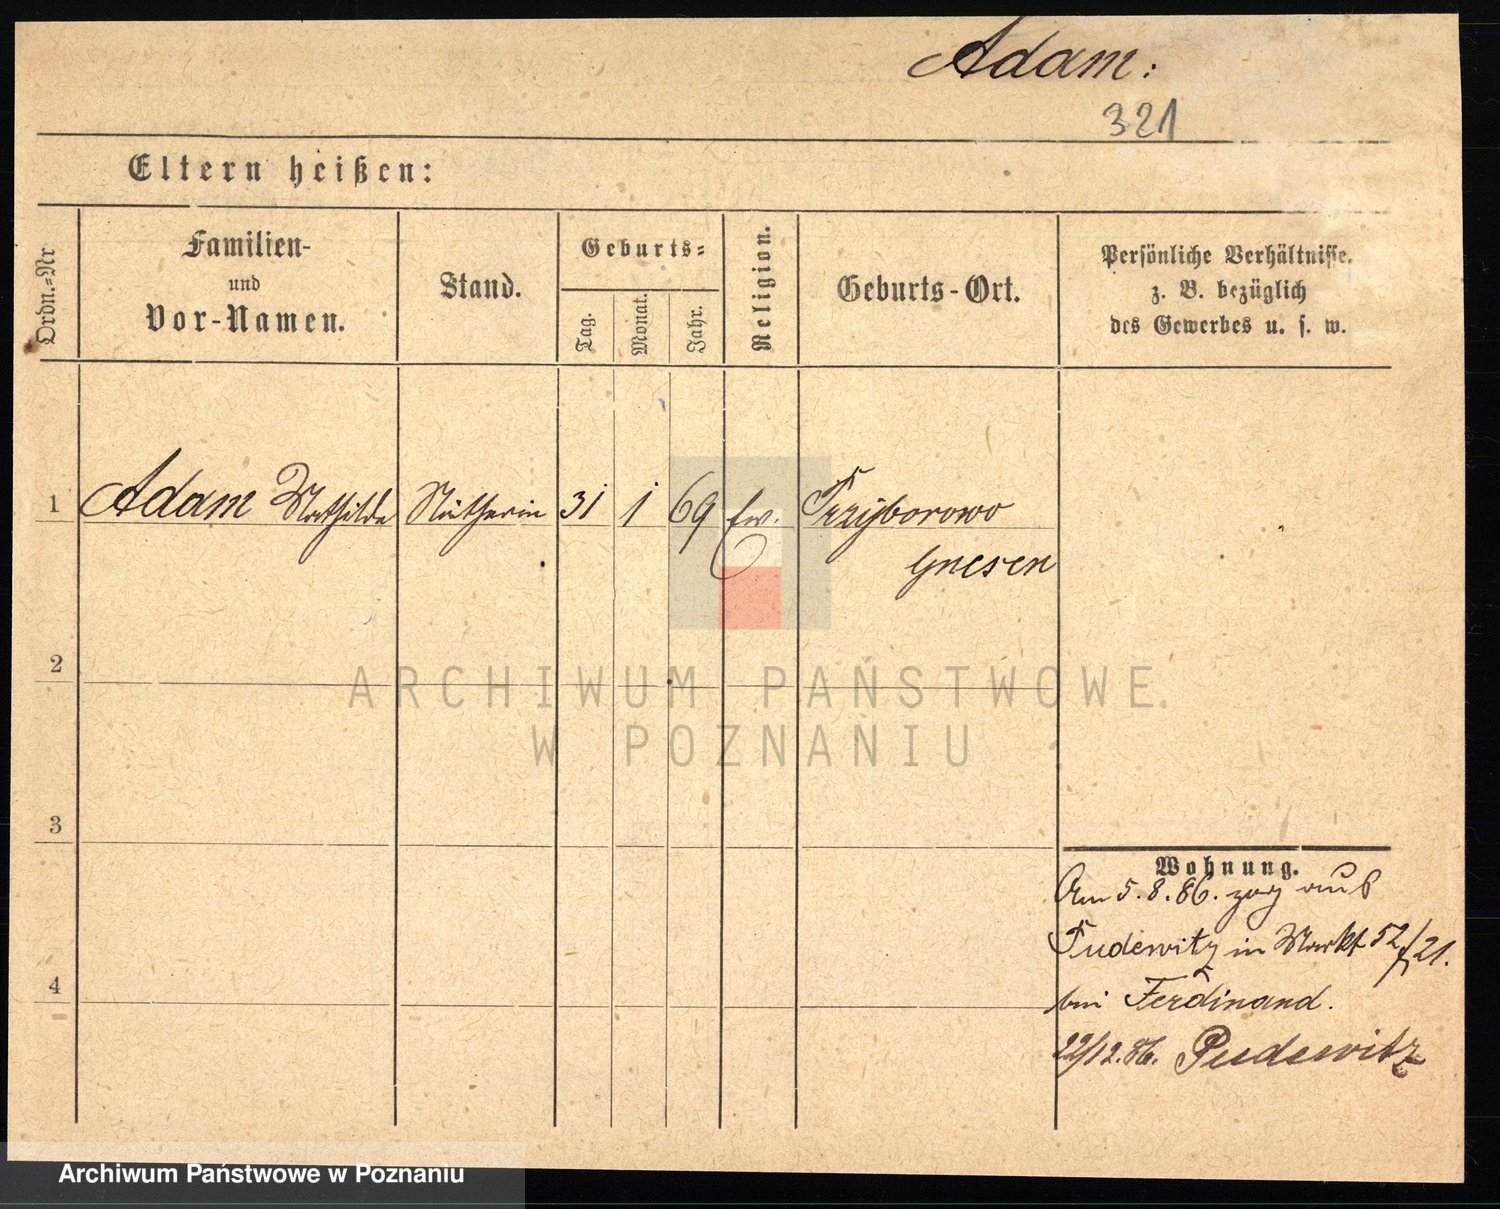 Adam:
321
Eltern heißen:
Ordn.-Nr
Familien-
und
Vor-Namen.
Stand.
Geburts-
Tag.
Monat.
Jahr.
Religion.
Geburts-Ort.
Persönliche Verhältnisse.
z. B. bezüglich
des Gewerbes u. s. w.
1 Adam Mathilde Nätherin 31 1 69 Ev. Przyborowo
Gnesen
2
ARCHIWUM PAŃSTWOWE
W POZNANIU
3
Wohnung.
Am 5.8.86. zog aus
Pudewitz in Markt 52/21.
4
bei Ferdinand.
22/12.86. Pudewitz
Archiwum Państwowe w Poznaniu